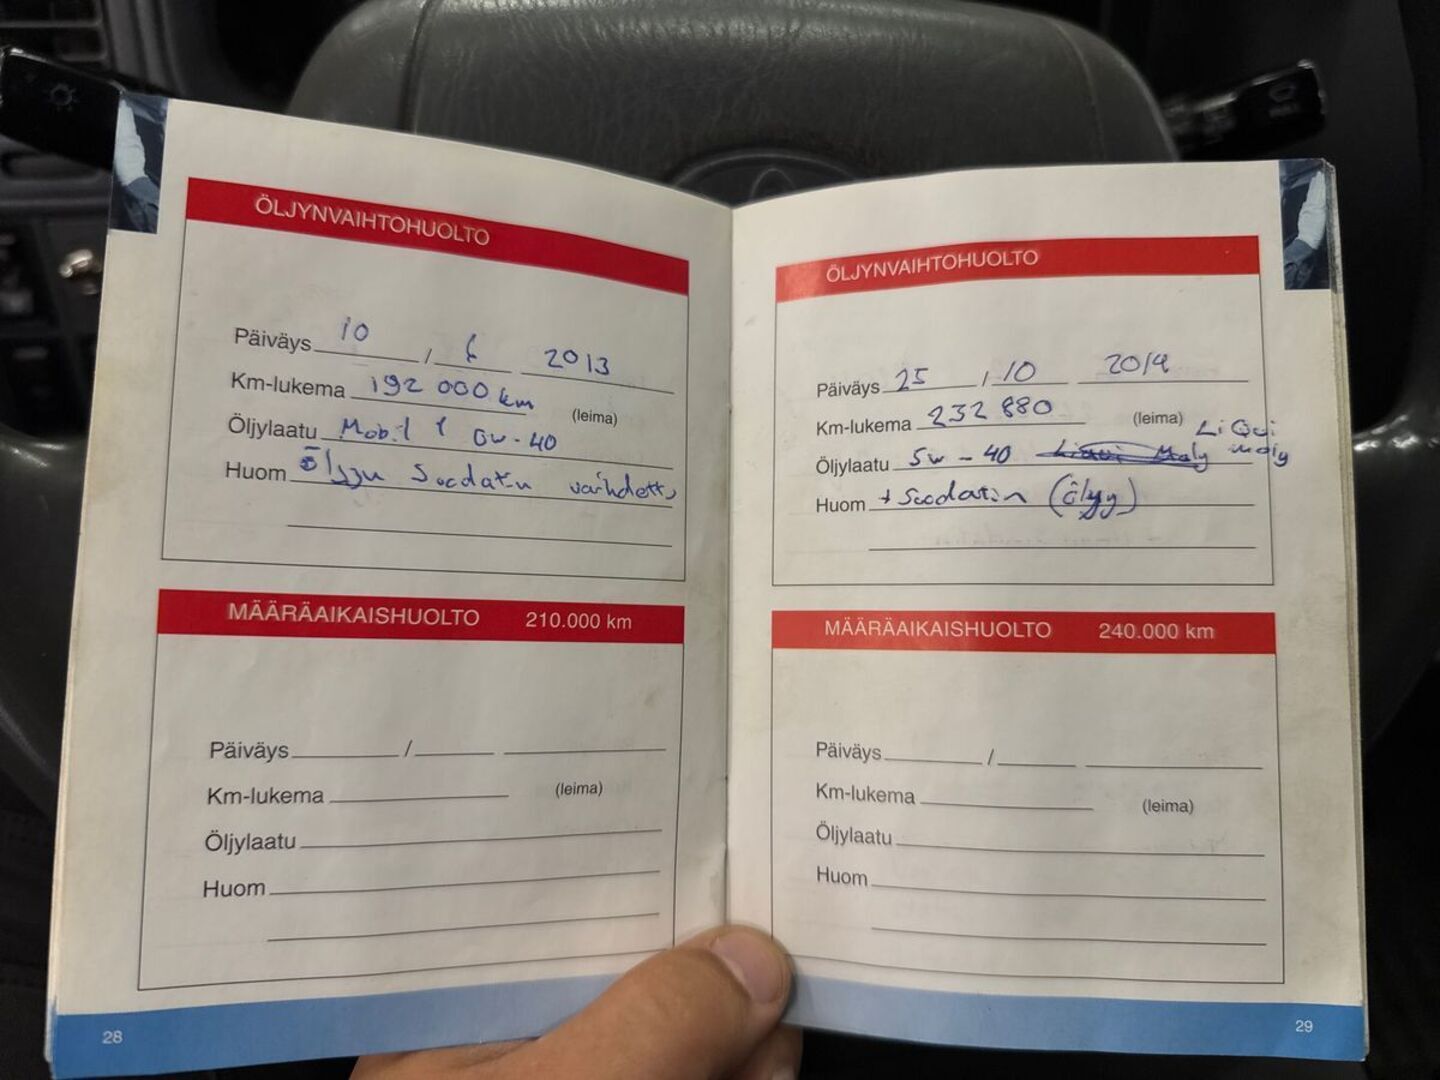 ÖLJYNVAIHTOHUOLTO
Päiväys 10 / 6 2013
Km-lukema 192 000 km (leima)
Öljylaatu Mobil 1 0w-40
Huom Öljyn Suodatin vaihdettu
MÄÄRÄAIKAISHUOLTO 210.000 km
Päiväys / 
Km-lukema (leima)
Öljylaatu
Huom
28
ÖLJYNVAIHTOHUOLTO
Päiväys 25 / 10 2014
Km-lukema 232 880 (leima)
Öljylaatu 5w-40 Liqui Moly LiQui moly
Huom + Suodatin (öljy)
MÄÄRÄAIKAISHUOLTO 240.000 km
Päiväys /
Km-lukema (leima)
Öljylaatu
Huom
29